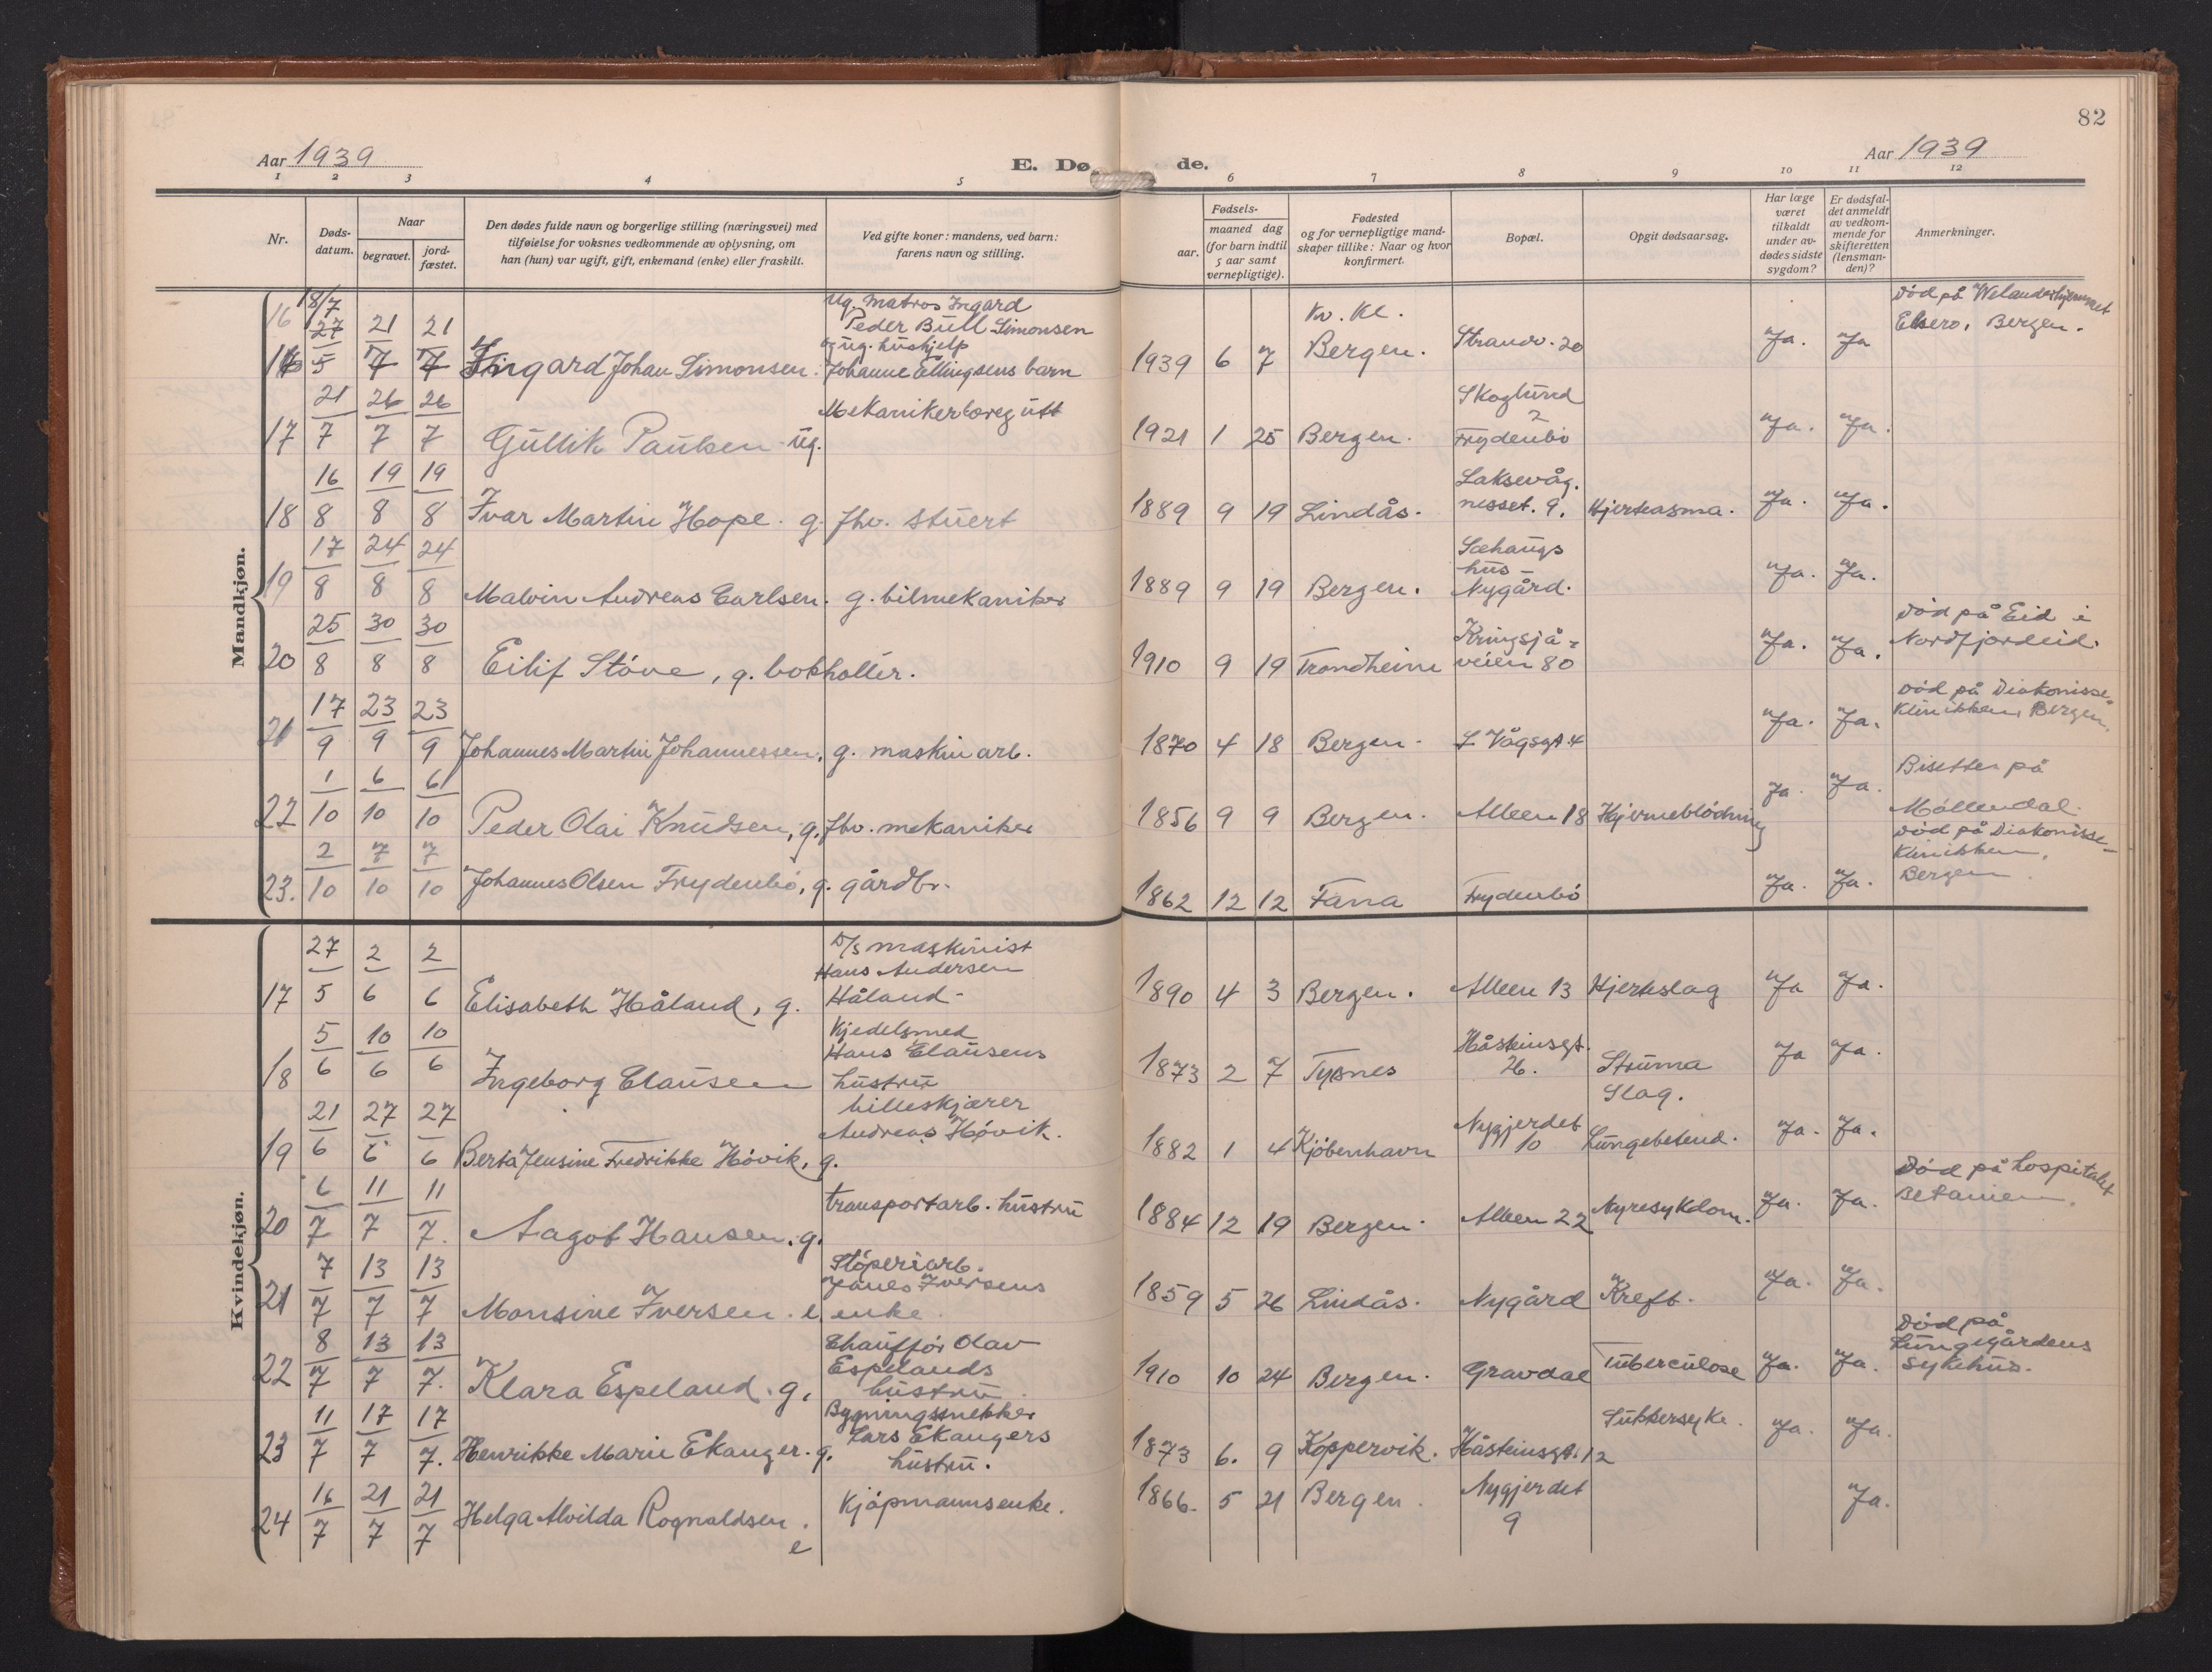 82
Aar 1939
E. Dø de.
Aar 1939
1 2 3 4 5 6 7 8 9 10 11 12
Nr.
Døds-
datum.
Naar
begravet.
jord-
fæstet.
Den dødes fulde navn og borgerlige stilling (næringsvei) med
tilføielse for voksnes vedkommende av oplysning, om
han (hun) var ugift, gift, enkemand (enke) eller fraskilt.
Ved gifte koner: mandens, ved barn:
farens navn og stilling.
Fødsels-
aar.
maaned dag
(for barn indtil
5 aar samt
vernepligtige).
Fødested
og for vernepligtige mand-
skaper tillike: Naar og hvor
konfirmert.
Bopæl.
Opgit dødsaarsag.
Har læge
været
tilkaldt
under av-
dødes sidste
sygdom?
Er dødsfal-
det anmeldt
av vedkom-
mende for
skifteretten
(lensman-
den)?
Anmerkninger.
Mandkjøn.
16 18/7 21/7 21/7 Ingard Johan Simonsen.
Ug. matros Ingard
Peder Bull Simonsen
og ug. hushjelp
Johanne Ellingsens barn
1939 6 7
Kv. Kl.
Bergen. Strandv. 20 Ja. Ja
Død på Welanderhjemmet
Elsero, Bergen.
17 21/7 26/7 26/7 Gullik Paulsen ug.
Mekanikerlæregutt
1921 1 25 Bergen.
Skoglund
2
Frydenbö
Ja. Ja.
18 16/8 19/8 19/8 Ivar Martin Hope. g. fhv. stuert
1889 9 19 Lindås.
Laksevåg.
nesset. 9.
Hjerteasma. Ja. Ja.
19 17/8 24/8 24/8 Malvin Andreas Carlsen. g. bilmekaniker
1889 9 19 Bergen.
Sæhaugs
hus -
Nygård.
Ja. Ja.
20 25/8 30/8 30/8 Eilif Stöve, g. bokholler.
1910 9 19 Trondheim
Kringsjå-
veien 80
Ja. Ja.
Död på Eid i
Nordfjordeid.
21 17/9 23/9 23/9 Johannes Martin Johannessen, g. maskinarb.
1870 4 18 Bergen. L Vågsgt. 4 Ja. Ja.
Död på Diakonisse-
klinikken, Bergen.
22 1/10 6/10 6/10 Peder Olai Knudsen, g. fhv. mekaniker
1856 9 9 Bergen. Alleen 18 Hjerneblödning Ja. Ja.
Bisettes på
Möllendal.
23. 2/10 7/10 7/10 Johannes Olsen Frydenbö, g. gårdbr.
1862 12 12 Fana Frydenbö Ja. Ja.
Död på Diakonisse-
klinikken,
Bergen.
Kvindekjøn.
17 27/5 2/6 2/6 Elisabeth Håland, g.
D/s maskinist
Hans Andersen
Håland.
1890 4 3 Bergen. Alleen 13 Hjerteslag Ja Ja.
18 5/6 10/6 10/6 Ingeborg Clausen
Kjedelsmed
Hans Clausens
hustru
1873 2 7 Tysnes
Håsteinsgt.
26.
Struma
Slag.
Ja Ja.
19 21/6 27/6 27/6 Berta Jensine Fredrikke Hövik, g.
billeskjærer
Andreas Hövik.
1882 1 4 Kjöbenhavn
Nygjerdet
10
Lungebetend. Ja. Ja.
20 6/7 11/7 11/7. Aagot Hansen, g.
transportarb. hustru
1884 12 19 Bergen. Alleen 22 Nyresykdom. Ja. Ja.
Död på hospitalet
Betanien.
21 7/7 13/7 13/7 Monsine Iversen. e.
Stöperiarb.
Iversens
enke.
1859 5 26 Lindås. Nygård Kreft. Ja. Ja.
22 8/7 13/7 13/7. Klara Espeland. g.
Chauffør Olav
Espelands
hustru.
1910 10 24 Bergen. Gravdal Tuberculose Ja. Ja.
Död på
Lungegårdens
sykehus.
23 11/7 17/7 17/7. Henrikke Marie Ekanger. g.
Bygningssnekker
Lars Ekangers
hustru.
1873 6. 9 Koppervik. Håsteinsgt. 12 Sukkersyke. Ja. Ja.
24 16/7 21/7 21/7 Helga Alvilda Rognaldsen. e
Kjöpmannsenke.
1866. 5 21 Bergen.
Nygjerdet
9
Ja.